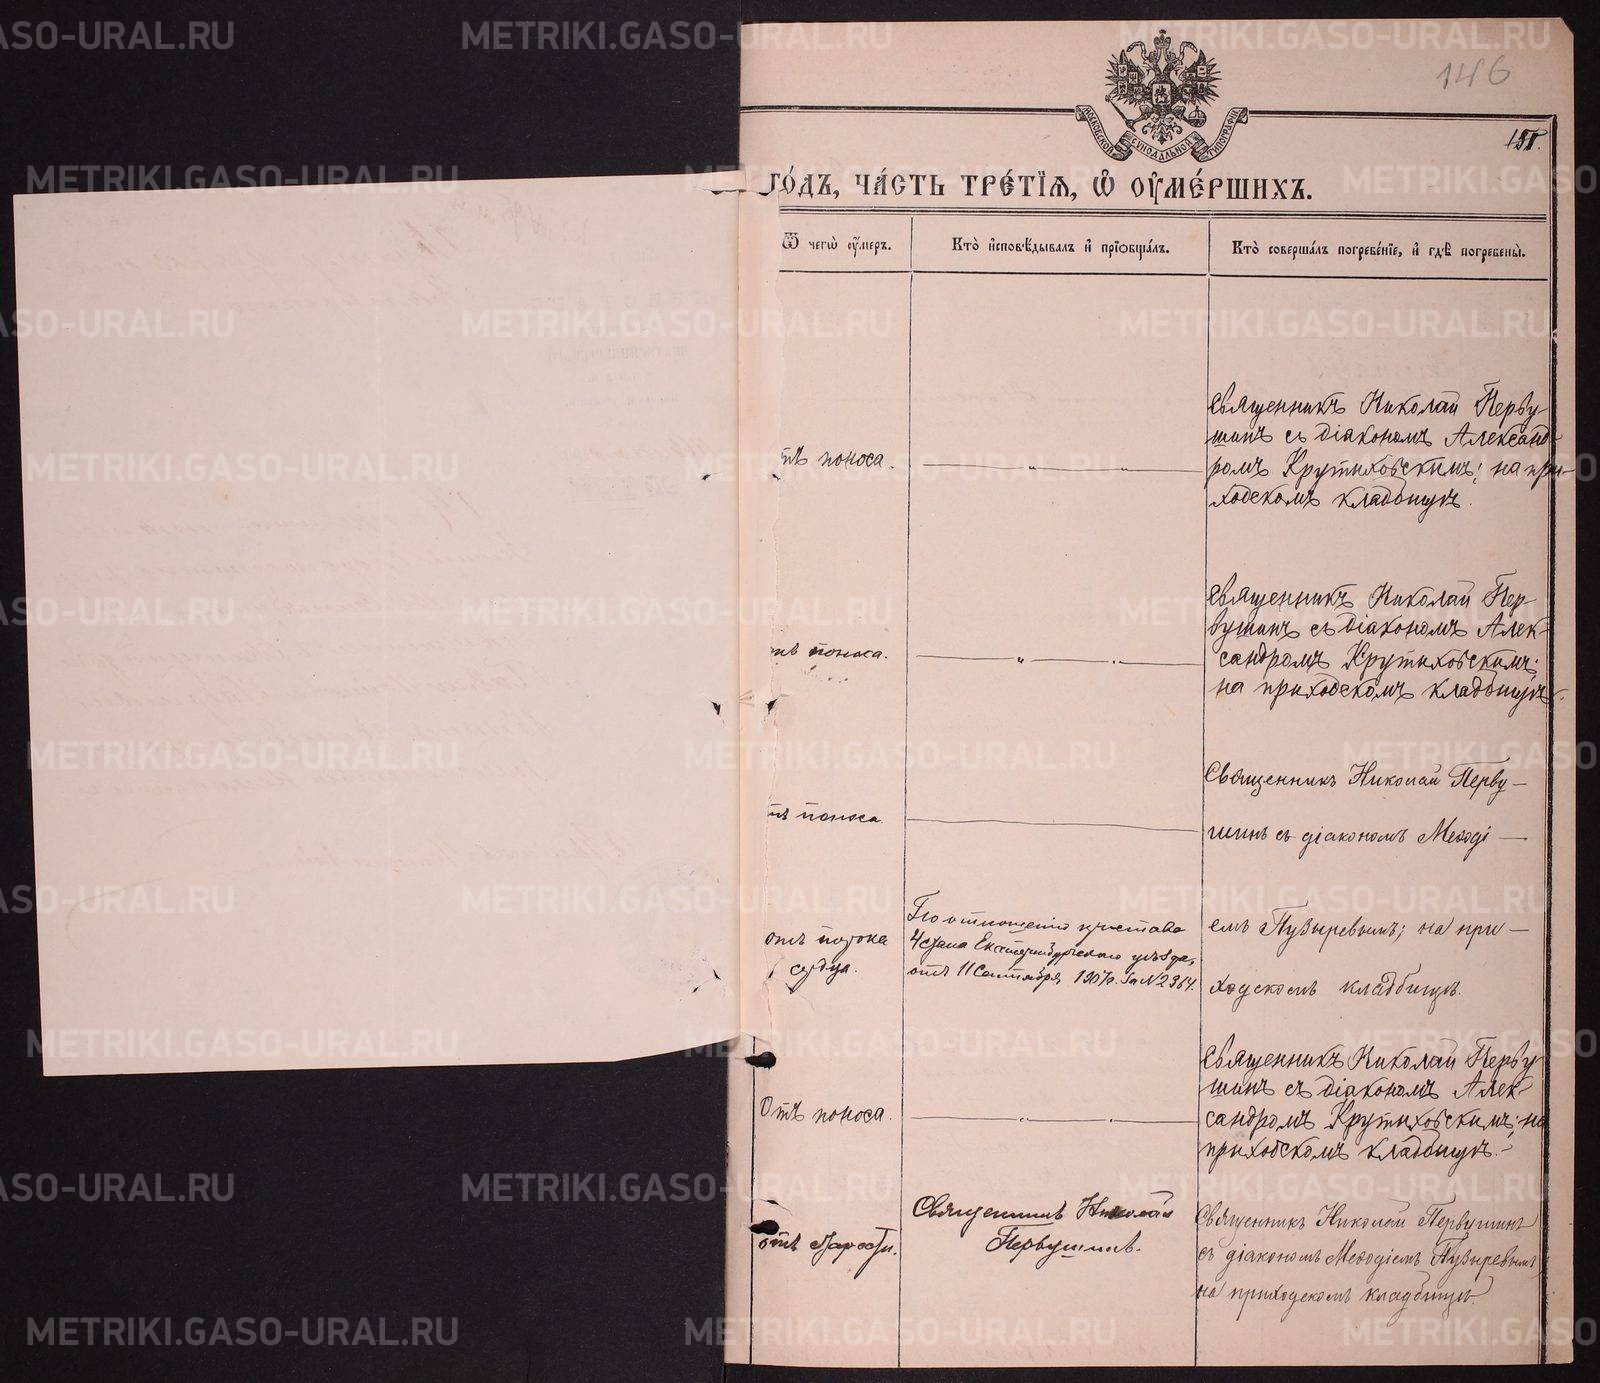 146
151.
МОСКОВСКОЙ СѴНОДАЛЬНОЙ ТИПОГРАФІИ
го́дъ, ча́сть тре́тїѧ, ѡ҆ оу҆ме́ршихъ.
Ѿ чегѡ̀ оу҆́меръ.
Кто̀ и҆сповѣ́дывалъ и҆ прїѡбща́лъ.
Кто̀ соверша́лъ погребе́нїе, и҆ гдѣ̀ погребены̀.
тъ поноса.
Священникъ Николай Перву
шинъ съ діакономъ Александ-
ромъ Крутиховскимъ; на при-
ходскомъ кладбищѣ.
тъ поноса.
Священникъ Николай Пер-
вушинъ съ діакономъ Алек-
сандромъ Крутиховскимъ;
на приходскомъ кладбищѣ.
тъ поноса
Священникъ Николай Перву-
шинъ съ діакономъ Меѳоді-
емъ Пузыревымъ; на при-
ходскомъ кладбищѣ.
отъ порока
сердца.
По отношенію пристава
4 стана Екатеринбургскаго уѣзда,
отъ 11 Сентября 1907г. за №2964.
Отъ поноса.
Священникъ Николай Перву
шинъ съ діакономъ Алек-
сандромъ Крутиховскимъ; на
приходскомъ кладбищѣ.-
отъ старости.
Священникъ Николай
Первушинъ.
Священникъ Николай Первушинъ
съ діакономъ Меѳодіемъ Пузыревымъ
на приходскомъ кладбищѣ.
METRIKI.GASO-URAL.RU